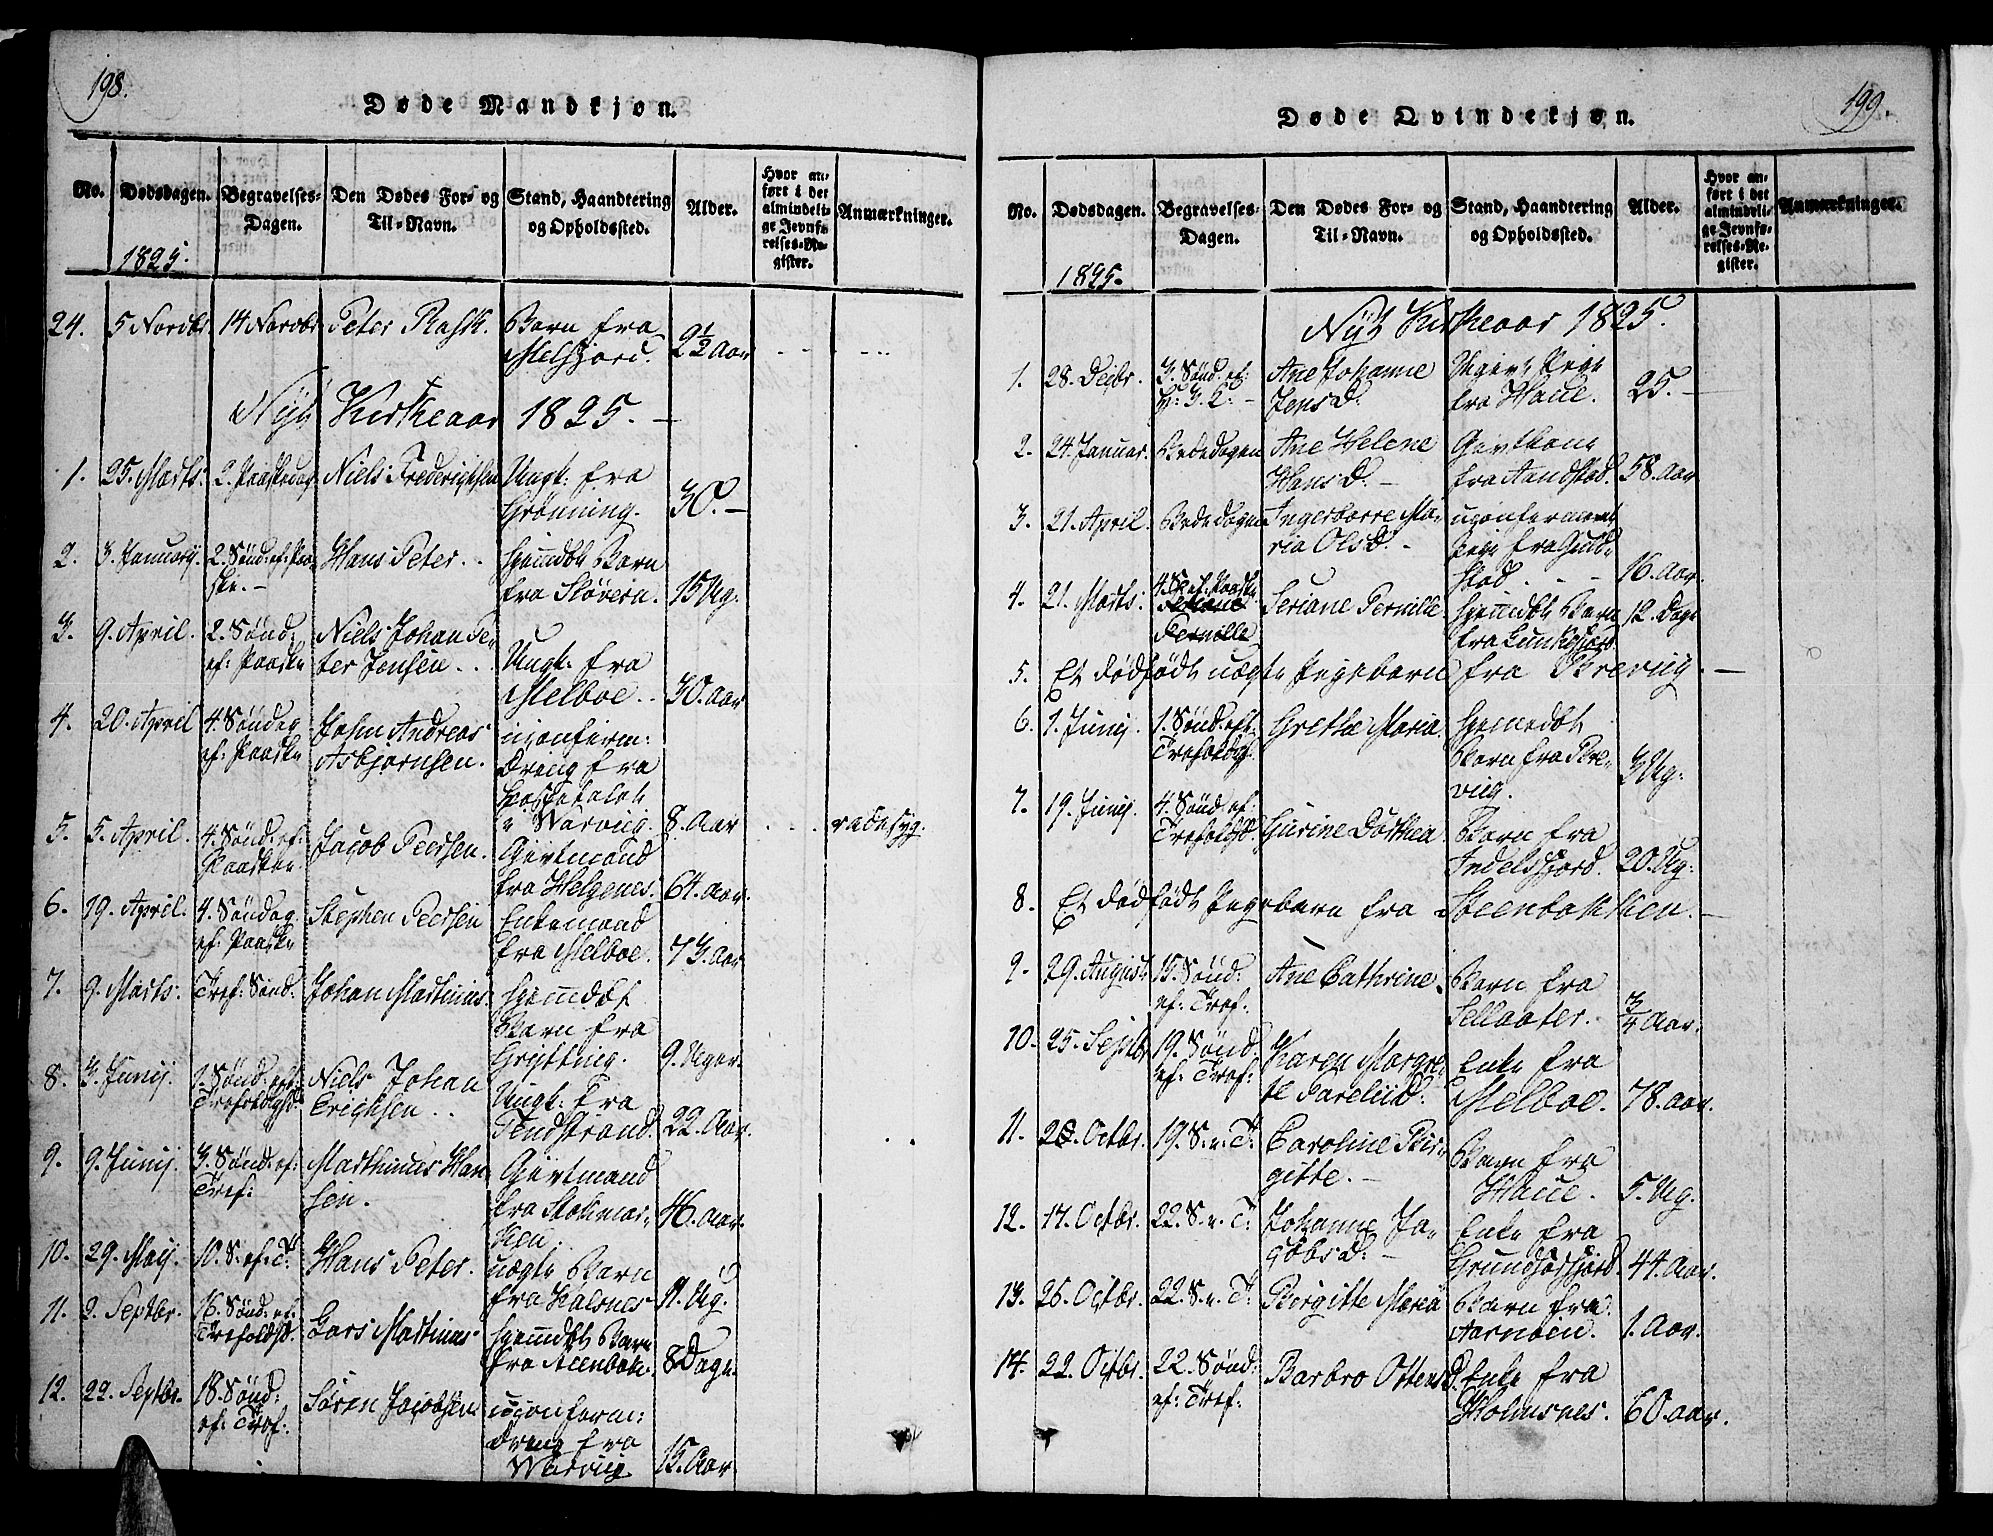 198.
Døde Mandkjøn.
No. Dødsdagen. Begravelses-Dagen. Den Dødes For- og Til-Navn. Stand, Haandtering og Opholdssted. Alder. Hvor anført i det almindelige Jevnførelses-Register. Anmærkninger.
1825.
24. 5 Novbr 14 Novbr Peter Rask. Barn fra Melfjord. 2½ Aar
Nyt Kirkeaar 1825.
1. 25. Marts. 2. Paaskedag Niels Frederichsen Ungk: fra Grønning. 30.
2. 3. Januarij. 2. Sønd: ef: Paaske. Hans Peter. hjemdøbt Barn fra Skovern. 15 Ug.
3. 9. April. 2. Sønd: ef: Paaske Niels Johan Peter Jensen. Ungk: fra Melboe. 30. Aar
4. 20. April 4. Søndag ef: Paaske John Andreas Asbjørnsen. uconfirm: Dreng fra Hospitalet i Warvig. 8. Aar radesyg.
5. 5. April. 4. Sønd: ef: Paasken Jacob Peersen. Giftmand fra Helgenes. 64. Aar.
6. 19. April. 4. Søndag ef: Paaske Stephen Peersen Enkemand fra Melboe. 73. Aar
7. 9. Marts. Tref: Sønd: Johan Martinus hjemdøbt Barn fra Gryttnig. 9. Uger.
8. 3. Junij. 1. Sønd: eft: Trefoldigh: Niels Johan Erichsen. Ungk: fra Tendstrand. 22. Aar.
9. 9. Junij. 3. Sønd: ef: Tref: Marthinus Hansen. Giftmand fra Stokmarken. 46. Aar.
10. 29. Maij. 10. S. ef: T: Hans Peter. uægte Barn fra Kalsnes 11. Ug.
11. 2. Septbr. 16. Sønd: ef: Trefoldhd. Lars Martinus hjemdøbt Barn fra Steenbak: 8 Dage.
12. 22. Septbr. 18. Sønd: ef: Tref. Søren Jacobsen uconfirm: Dreng fra Warviig 15. Aar.
199.
Døde Qvindekjøn.
No. Dødsdagen. Begravelses-Dagen. Den Dødes For- og Til-Navn. Stand, Haandtering og Opholdssted. Alder. Hvor anført i det almindelige Jevnførelses-Register. Anmærkninger.
1825.
Nyt Kirkeaar 1825.
1. 28. Decbr. 3. Sønd. ef: H: 3. K. Ane Johanne Jensd. Ugivt Pige fra Haue. 25.
2. 24. Januar. Bededagen Ane Helene Hansd. Givtkone fra Aandstad. 58. Aar
3. 21. April. Bededagen Ingerborre Maria Olsd. uconfermeret Pige fra Guldstad. 16. Aar.
4. 21. Marts. 4. S. ef: Paaske Seriane Pernille hjemdøbt Barn fra Lunkefjord 12. Dage
5. Et dødfødt uægte Pigebarn fra Brevug.
6. 1. Junij. 1. Sønd: eft: Trefoldgh. Grethe Maria hjemedøbt Barn fra Brevug. 3 Ug.
7. 19. Junij. 4. Sønd: ef: Trefoldhd. Gurine Dorthea Barn fra Indelsfjord. 20. Ug:
8. Et dødfødt Pigebarn fra Steenbakken.
9. 29. August 15. Sønd: ef: Tref: Ane Cathrine. Barn fra Sellaater. ¾ Aar.
10. 25. Septbr 19. Sønd. ef: Tref: Karen Margrete Pareliid: Enke fra Melboe. 78. Aar.
11. 28. Octbr. 19. S. e. T: Caroline Birgitte. Barn fra Haue. 5. Ug.
12. 17. Octbr. 22. S. e. T: Johanne Jacobsd: Enke fra Grundforfjord. 44. Aar.
13. 26. Octbr. 22. S. e. T: Birgitte Maria Barn fra Aarnøen. 1. Aar.
14. 22. Octbr. 22. Sønd: ef: Tref: Barbro Ottensd. Enke fra Holmsnes. 60. Aar.